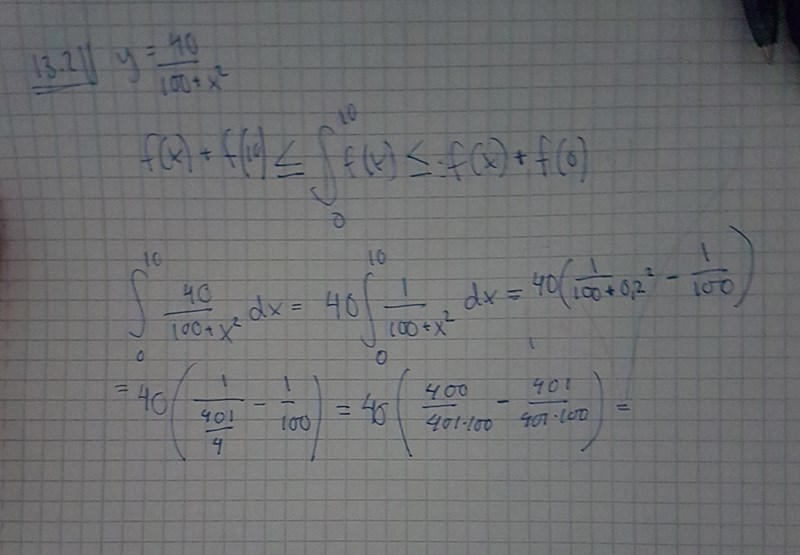 13.21 y = 40/(100+x²)
f(x) + f(10) ≤ ∫₀¹⁰ f(x) ≤ f(x) + f(0)
∫₀¹⁰ 40/(100+x²) dx = 40 ∫₀¹⁰ 1/(100+x²) dx = 40(1/(100+0,2²) - 1/100)
= 40(1/(401/4) - 1/100) = 40(400/(401·100) - 401/(401·100)) =